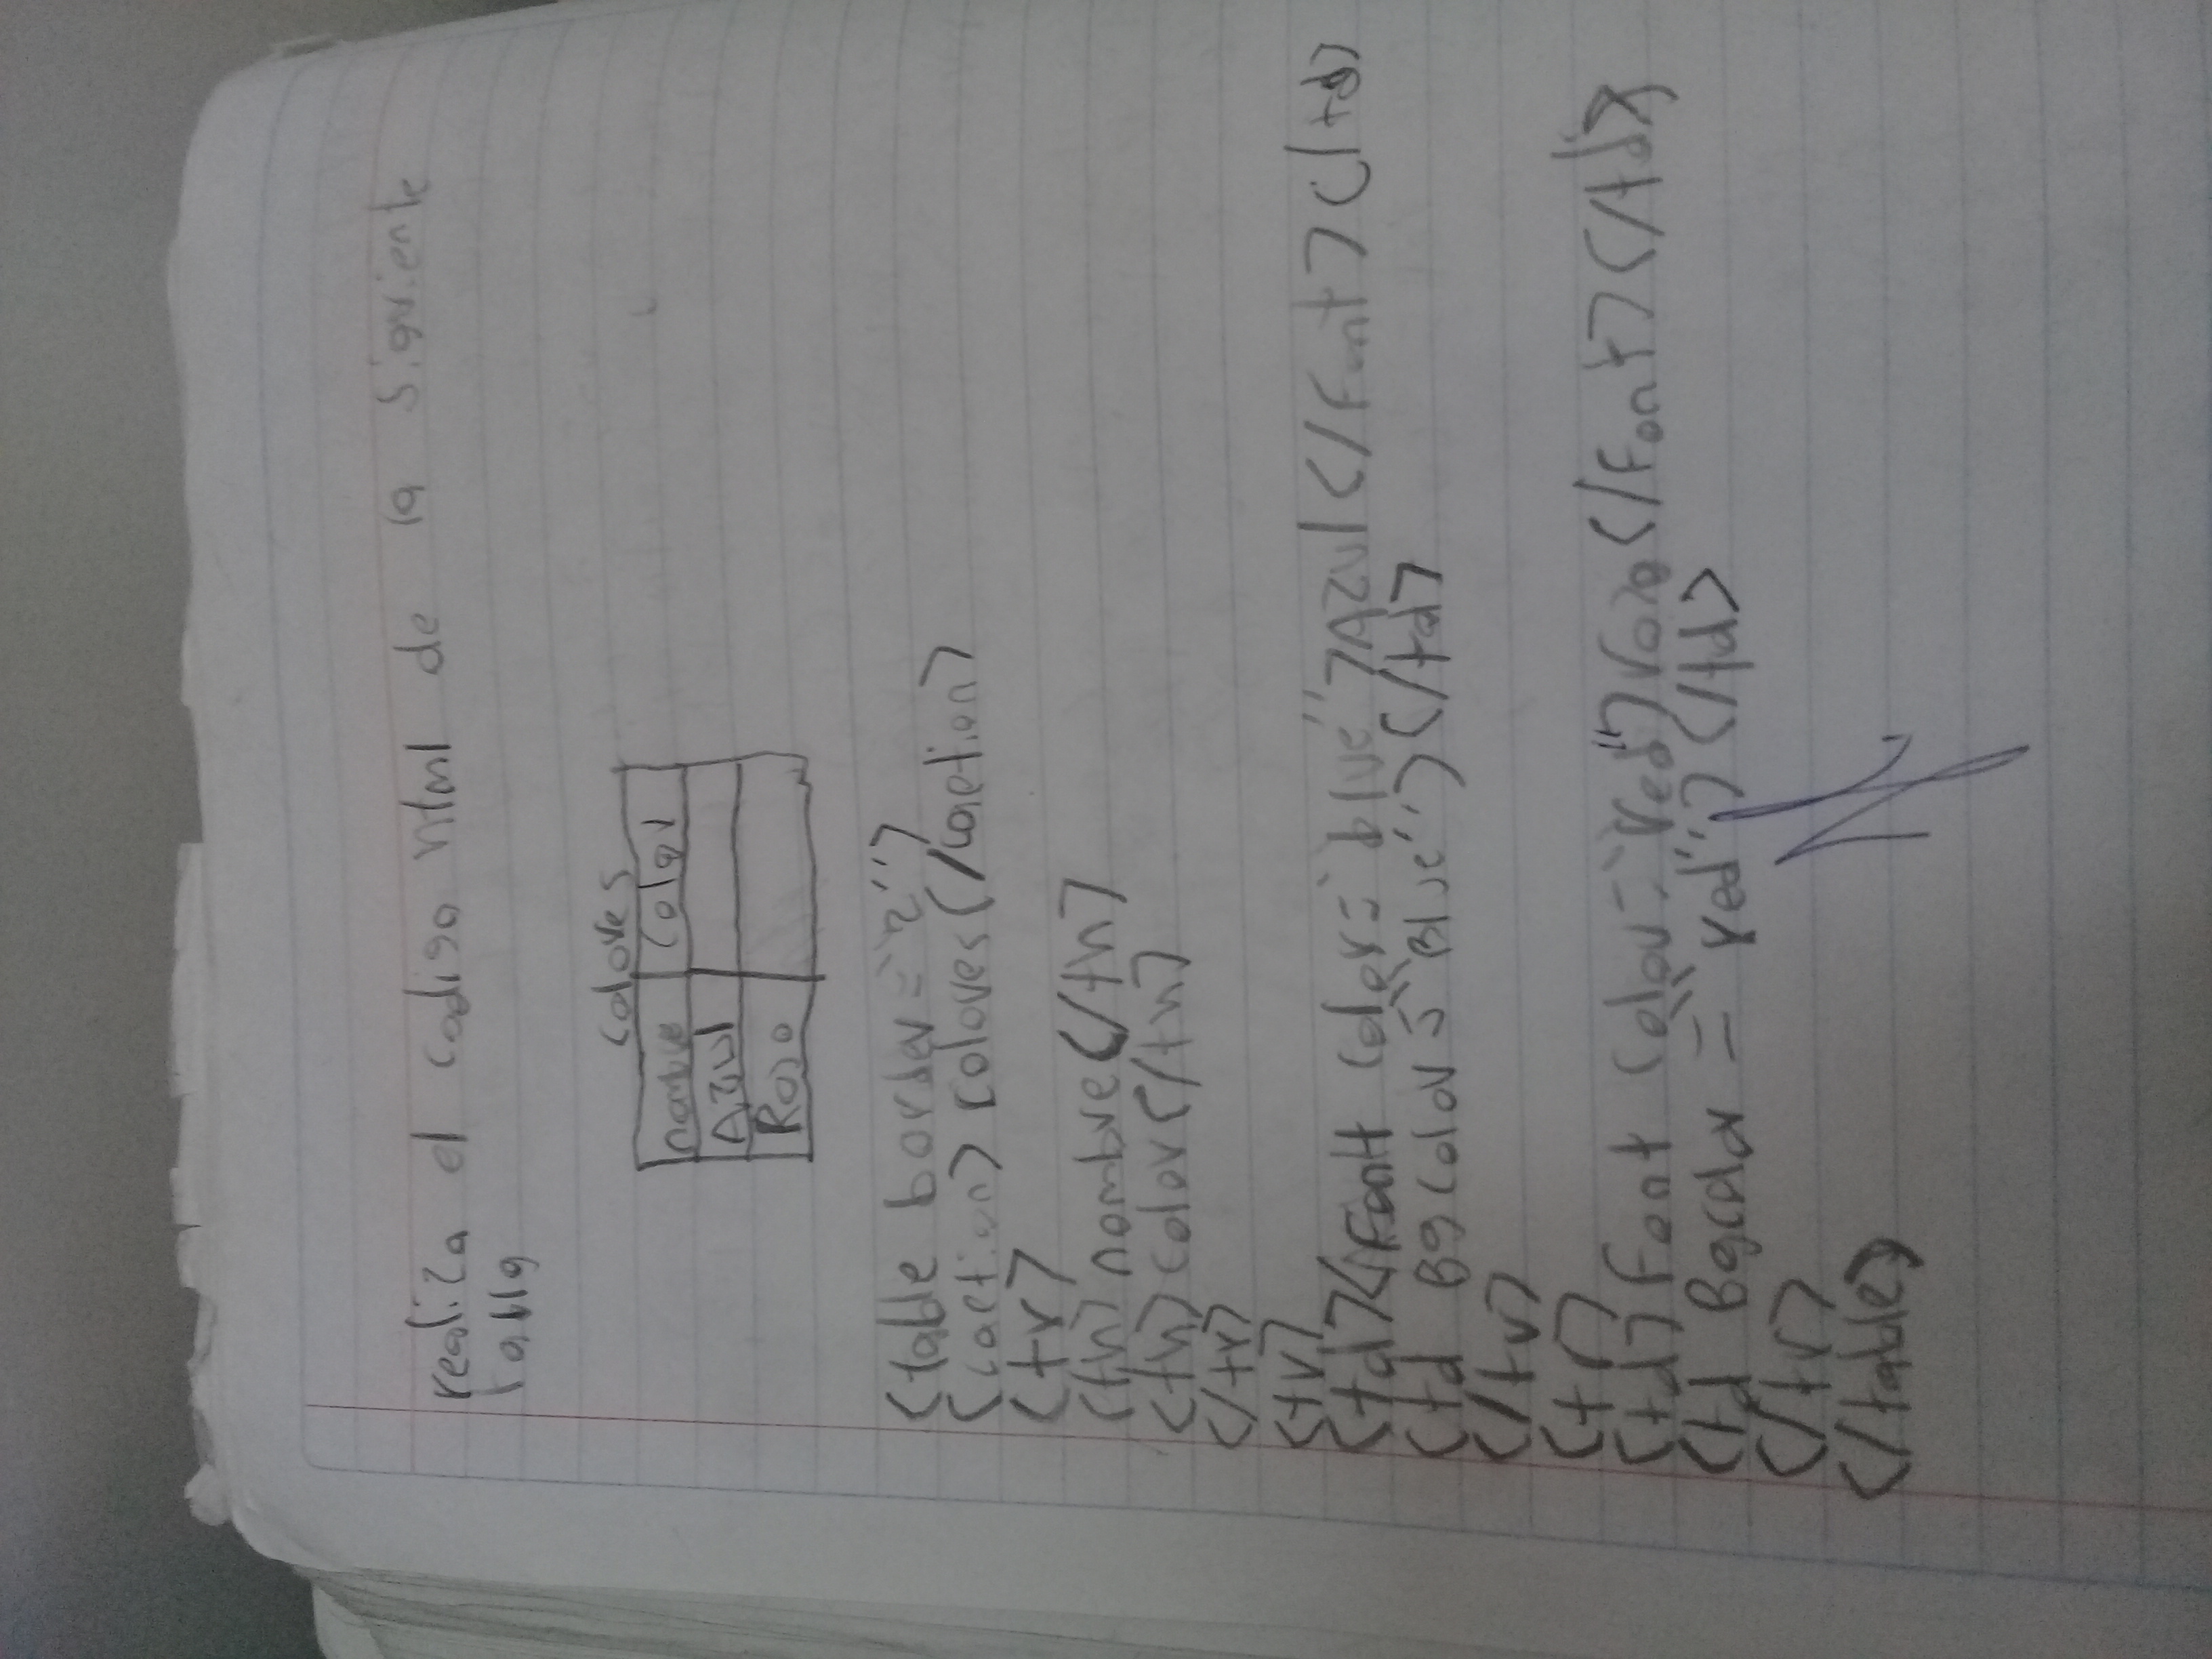 realiza el codigo html de la siguiente
tabla
colores
nombre color
Azul
Rojo
<table border="2">
<caction> colores</caction>
<tr>
<th>nombre</th>
<th>color</th>
</tr>
<tr>
<td></Font color="blue">Azul</Font></td>
<td Bgcolor="Blue"></td>
</tr>
<tr>
<td>Font color="red">rojo</Font></td>
<td Bgcolor="red"></td>
</tr>
</table>